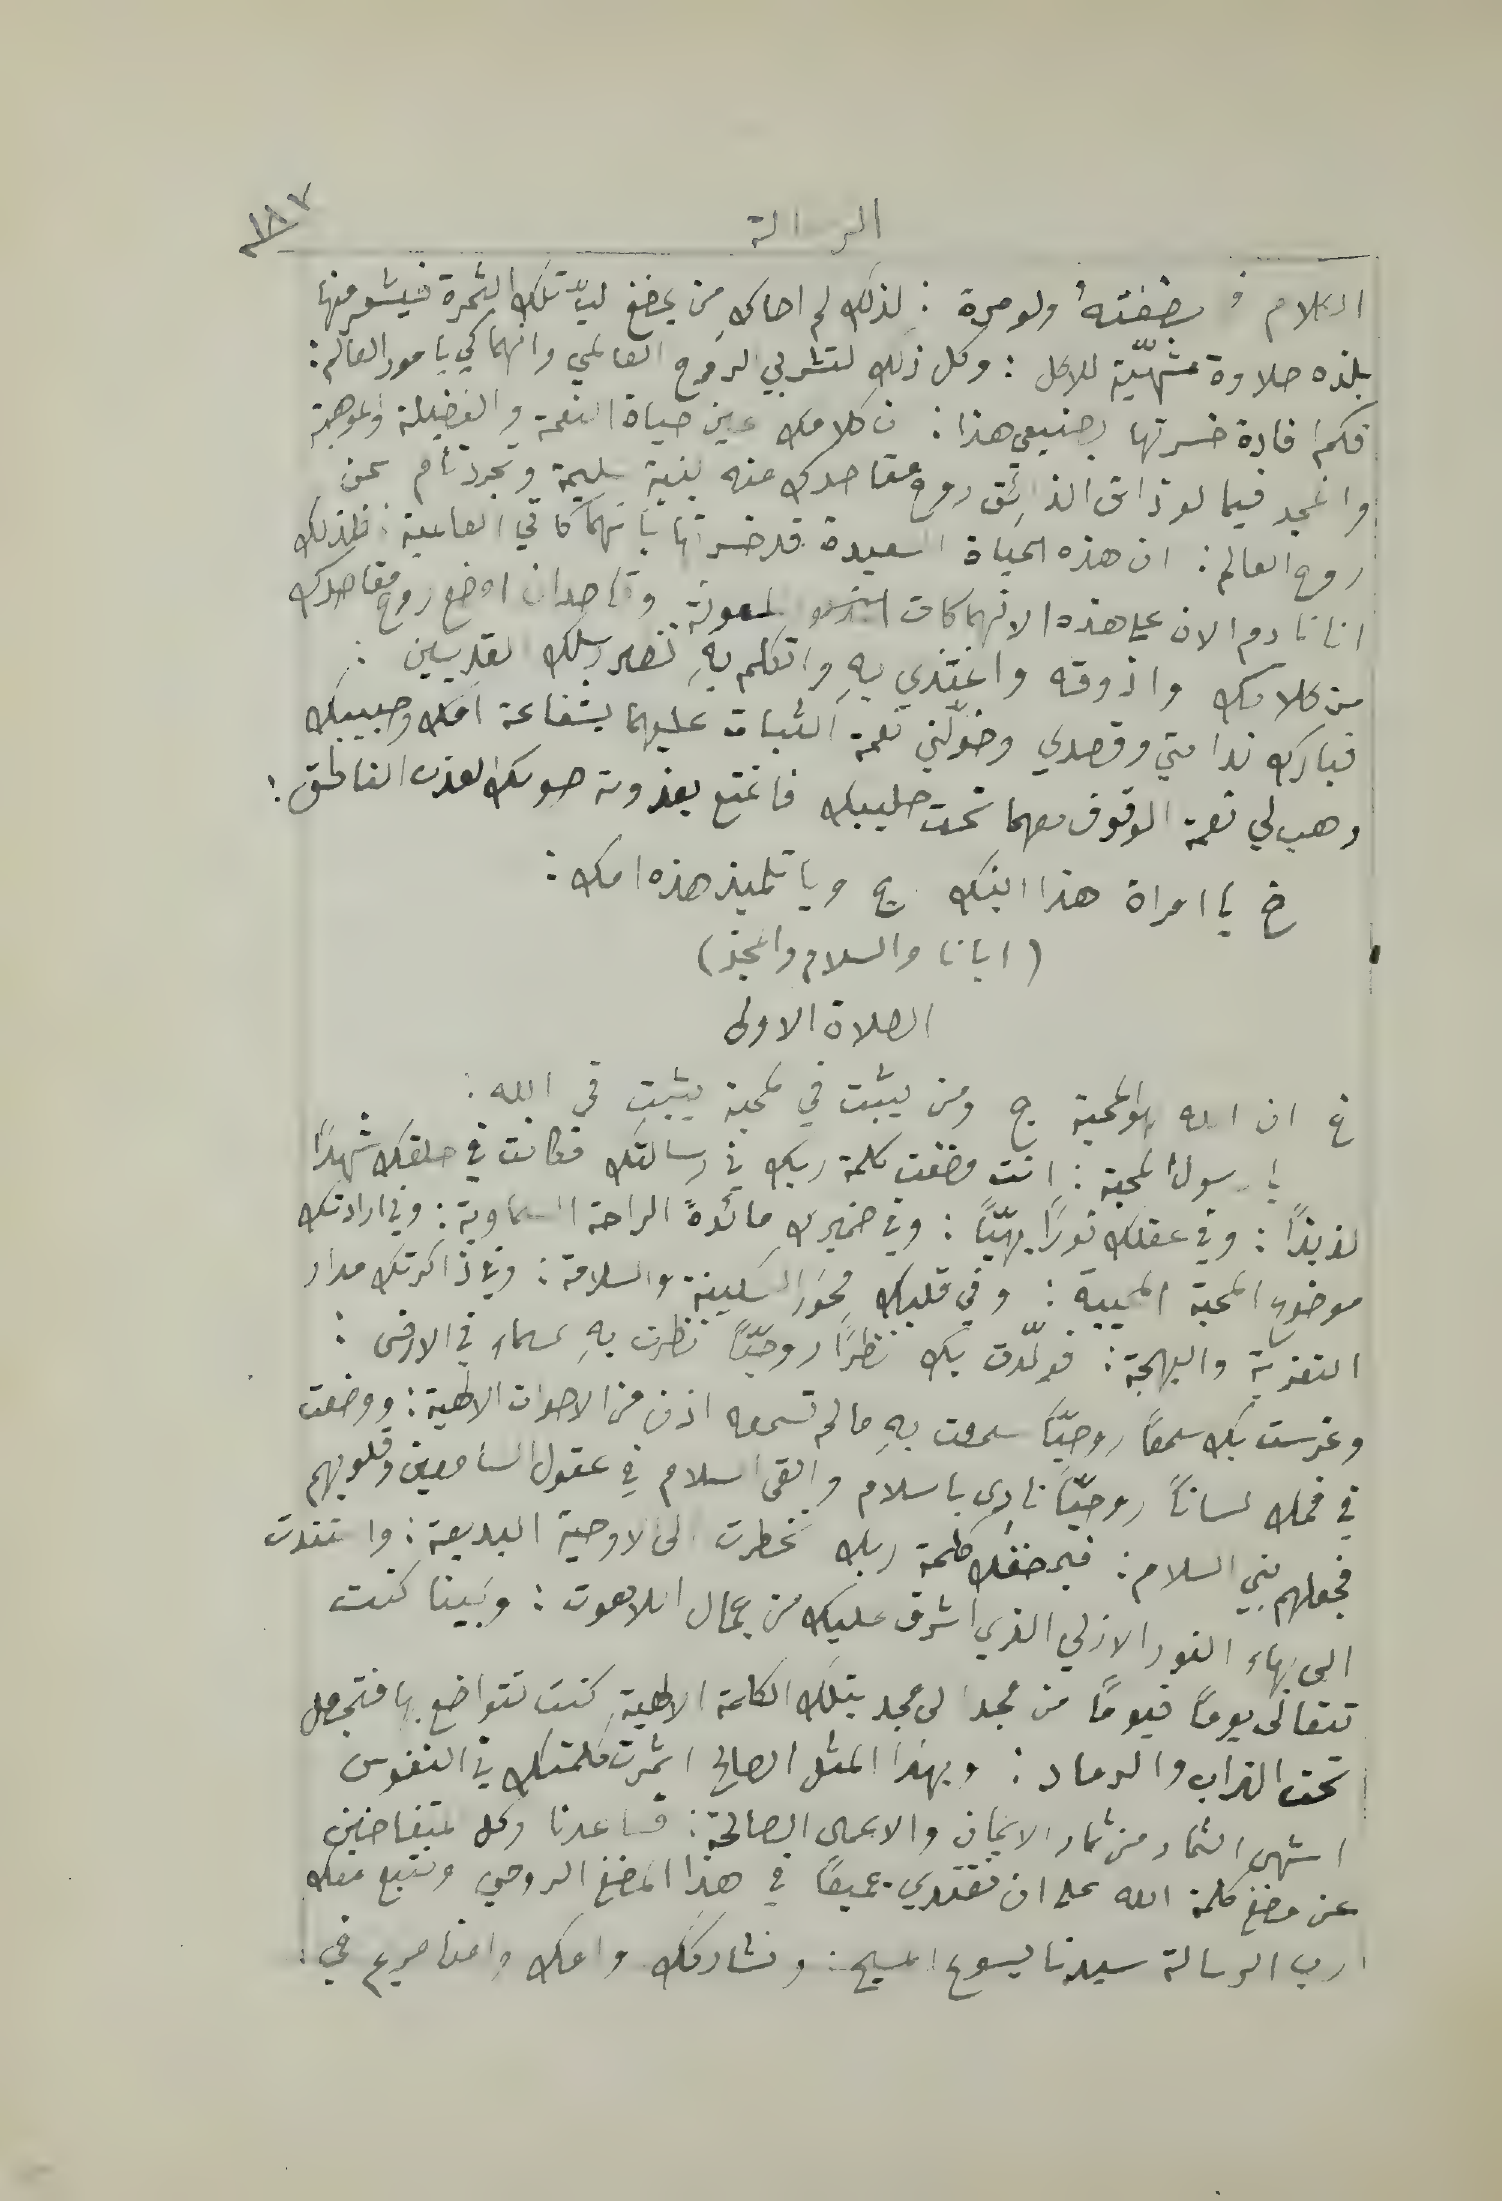 الرسالة
١٨٧
الكلام فمضغتهُ ولو مرة : لذلك لم احاكِ من يمضغ لبّ تلك الثمرة فيشعر منها
بلذه حلاوة شهيّة للاكل : وكل ذلك لتشربي الروح العالمي وانهماكي بامور العالم :
فكم افادة خسرتها بصنيعي هذا : ان كلامك عين حياة النعمة والفضيلة والموهبة
والمجد فيما لو ذاق الذائق روح مقاصدك منه بنية سليمة وتجرد تام عن
روح العالم : ان هذه الحياة السعيدة قد خسرتها بانهماكاتي العالمية : فلذلك
انا نادم الان على هذه الانهماكات وقاصد ان امضغ روح مقاصدك
من كلامك واذوقه واغتذي بهِ واتكلم بهِ نضير رسلك القديسين :
فبارك ندامتي وقصدي وخوّلني نعمة الثبات عليهما بشفاعة امك وحبيبك
وهب لي نعمة الوقوف معهما تحت صليبك فاتمتع بعذوبة صوتك العذب الناطق :
خ يا امراة هذا ابنك ج ويا تلميذ هذه امك :
(ابانا والسلام والمجد)
الصلاة الاولى
خ ان الله هو المحبة ج ومن يثبت في المحبة يثبت في الله :
يا رسول المحبة : انت مضغت كلمة ربك في رسالتك فكانت في حلقك شهدًا
لذيذًا : وفي عقلك نورًا بهيّاً : وفي ضميرك مائدة الراحة السماوية : وفي ارادتك
موضوع المحبة المحيية : وفي قلبك محور السكينة والسلامة : وفي ذاكرتك مدار
التعزية والبهجة : فولّدت بك نظرًا روحيّاً نظرت بهِ سماء في الارض :
وغرست بك سمعًا روحيّاً سمعت بهِ ما لم تسمعه اذن من الاصوات الالهية : ووضعت
في فمك لساناً روحيّاً نادى بالسلام والقى السلام في عقول السامعين وقلوبهم
فجعلهم بني السلام : فبمضغك كلمة ربك نخطرت الى الاوحية البديعة : واستندت
الى بهاء النور الازلي الذي اشرق عليك من جمال اللاهوت : وبينا كنت
تتعالى يوماً فيومًا من مجد الى مجد بتلك الكلمة الالهية كنت تتواضع بها فتجعل
تحت التراب والرماد : وبهذا المثل الصالح اثمرت كلمتك في النفوس
اشهى الثمار من ثمار الايمان والاعمال الصالحة : فساعدنا وكل المتغاضين
عن مضغ كلمة الله على ان نقتدي جميعًا في هذا المضغ الروحي ونتبع معك
ارب الرسالة سيدنا يسوع المسيح : ونشاركك وامك وامنا مريم في :